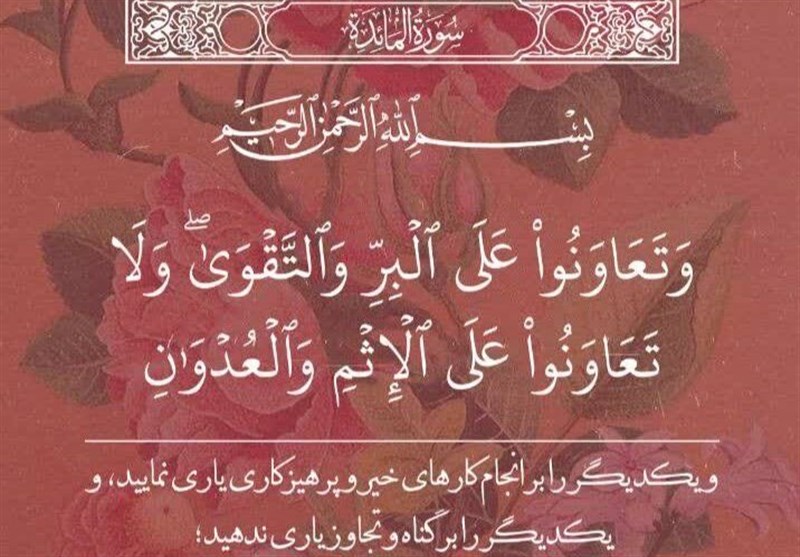 سُورَةُ المَائِدَة
بِسْمِ ٱللَّهِ ٱلرَّحْمَٰنِ ٱلرَّحِيمِ
وَتَعَاوَنُوا۟ عَلَى ٱلْبِرِّ وَٱلتَّقْوَىٰ ۖ وَلَا
تَعَاوَنُوا۟ عَلَى ٱلْإِثْمِ وَٱلْعُدْوَٰنِ
و یکدیگر را بر انجام کارهای خیر و پرهیزکاری یاری نمایید، و
یکدیگر را بر گناه و تجاوز یاری ندهید؛